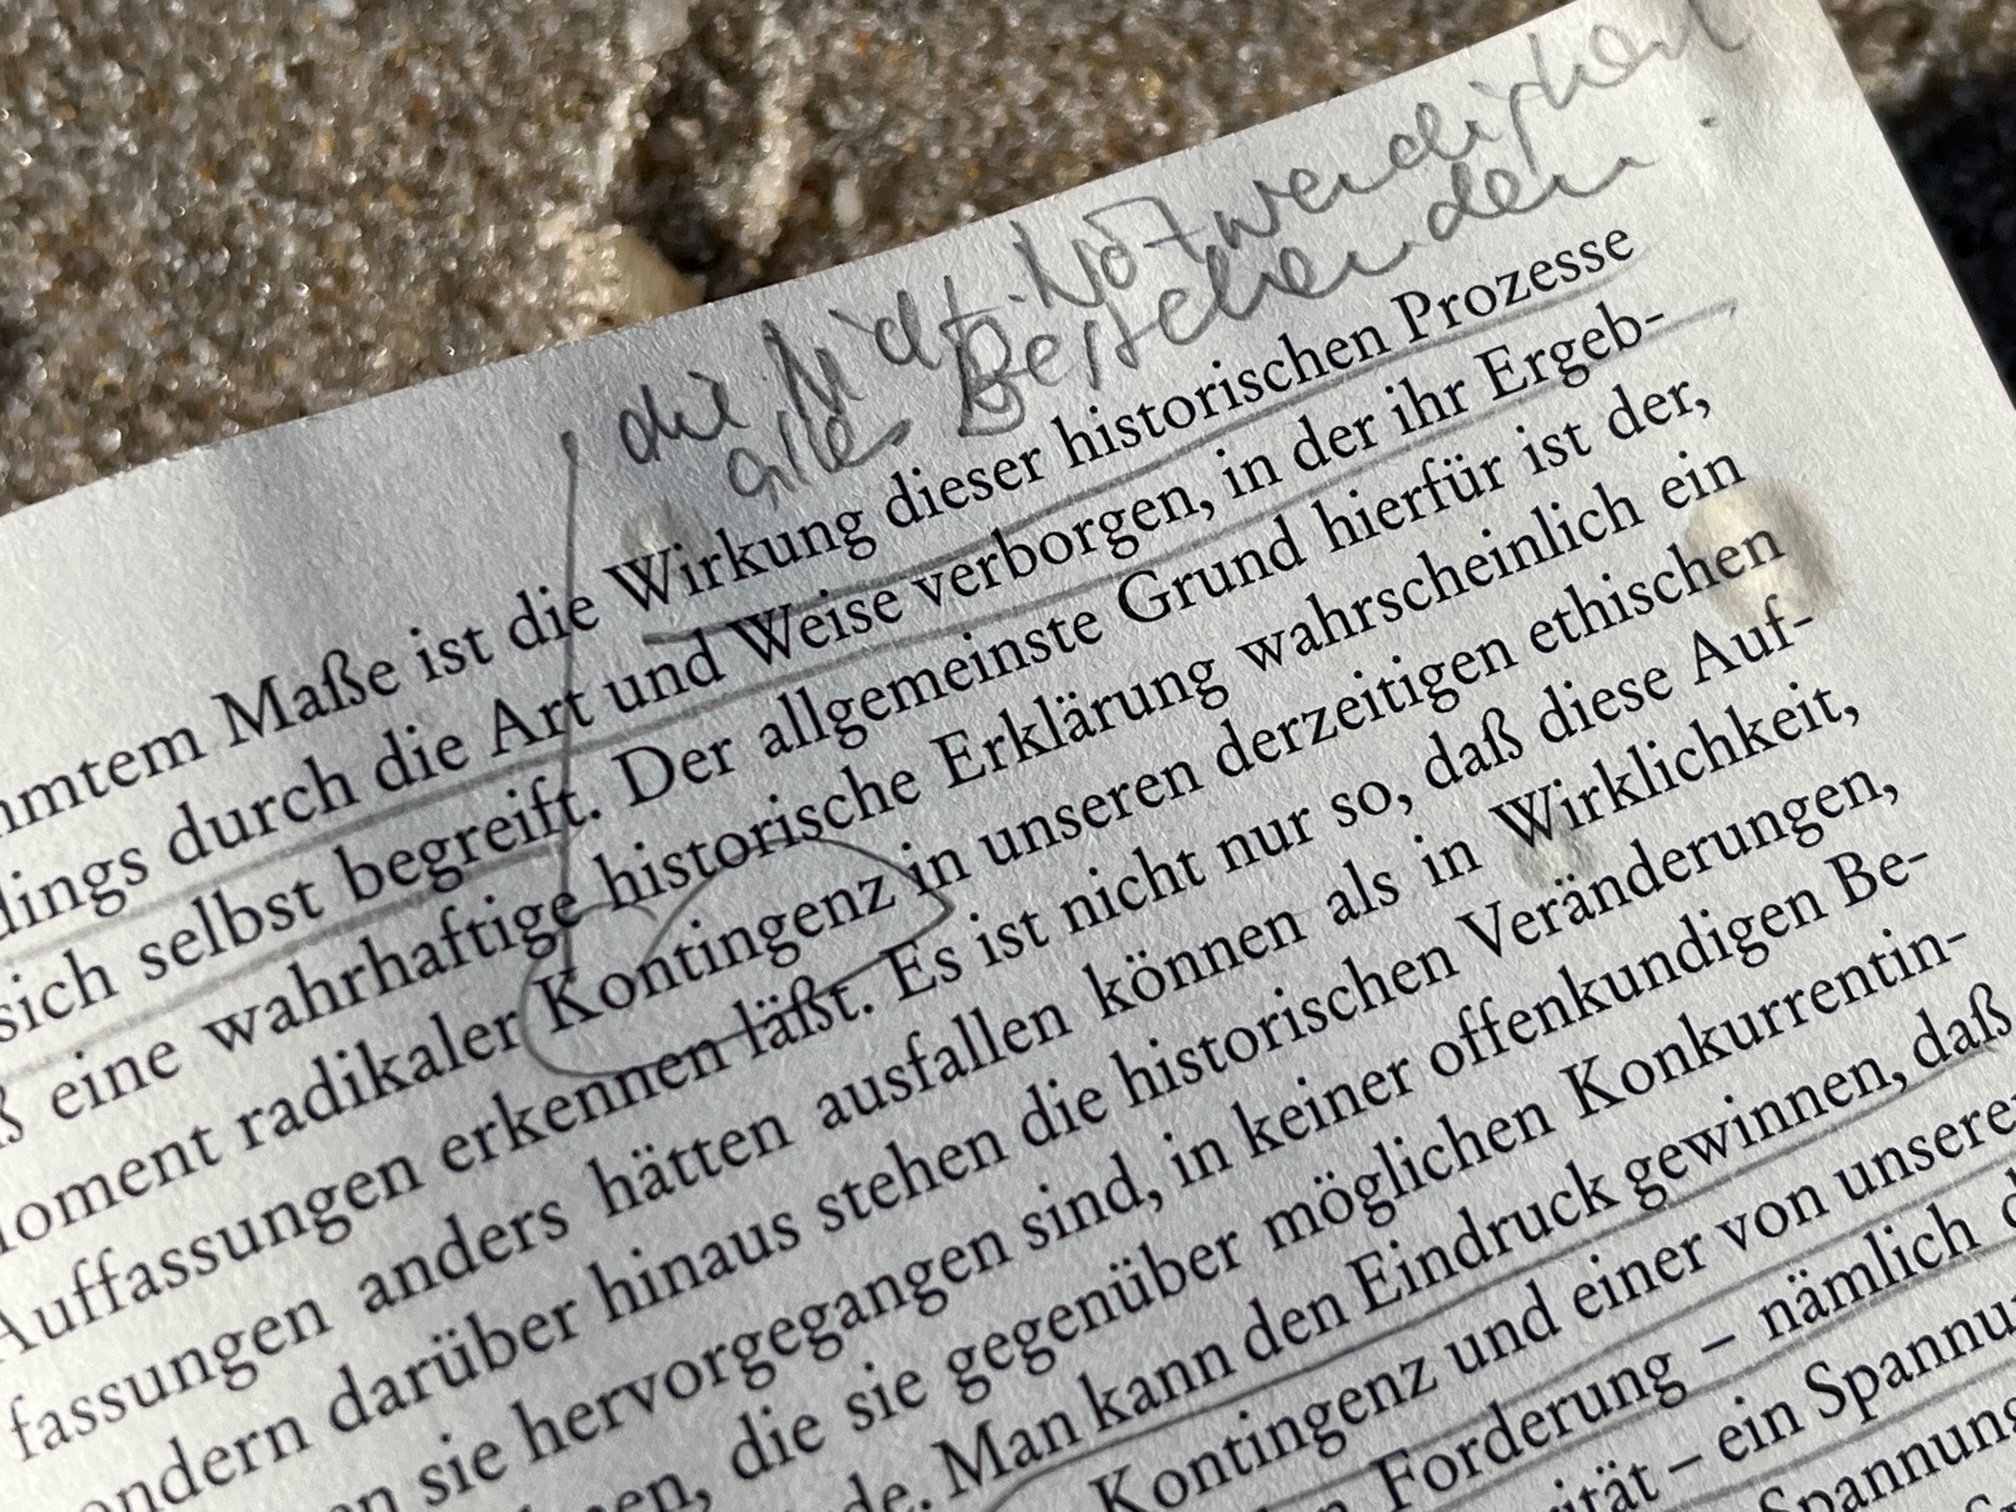 die Nicht-Notwendigkeit
alles Bestehenden.
mmtem Maße ist die Wirkung dieser historischen Prozesse
dings durch die Art und Weise verborgen, in der ihr Ergeb-
sich selbst begreift. Der allgemeinste Grund hierfür ist der,
ß eine wahrhaftige historische Erklärung wahrscheinlich ein
oment radikaler Kontingenz in unseren derzeitigen ethischen
Auffassungen erkennen läßt. Es ist nicht nur so, daß diese Auf-
fassungen anders hätten ausfallen können als in Wirklichkeit,
ondern darüber hinaus stehen die historischen Veränderungen,
en sie hervorgegangen sind, in keiner offenkundigen Be-
nen, die sie gegenüber möglichen Konkurrentin-
de. Man kann den Eindruck gewinnen, daß
Kontingenz und einer von unsere
n Forderung – nämlich
ität – ein Spannu
Spannung